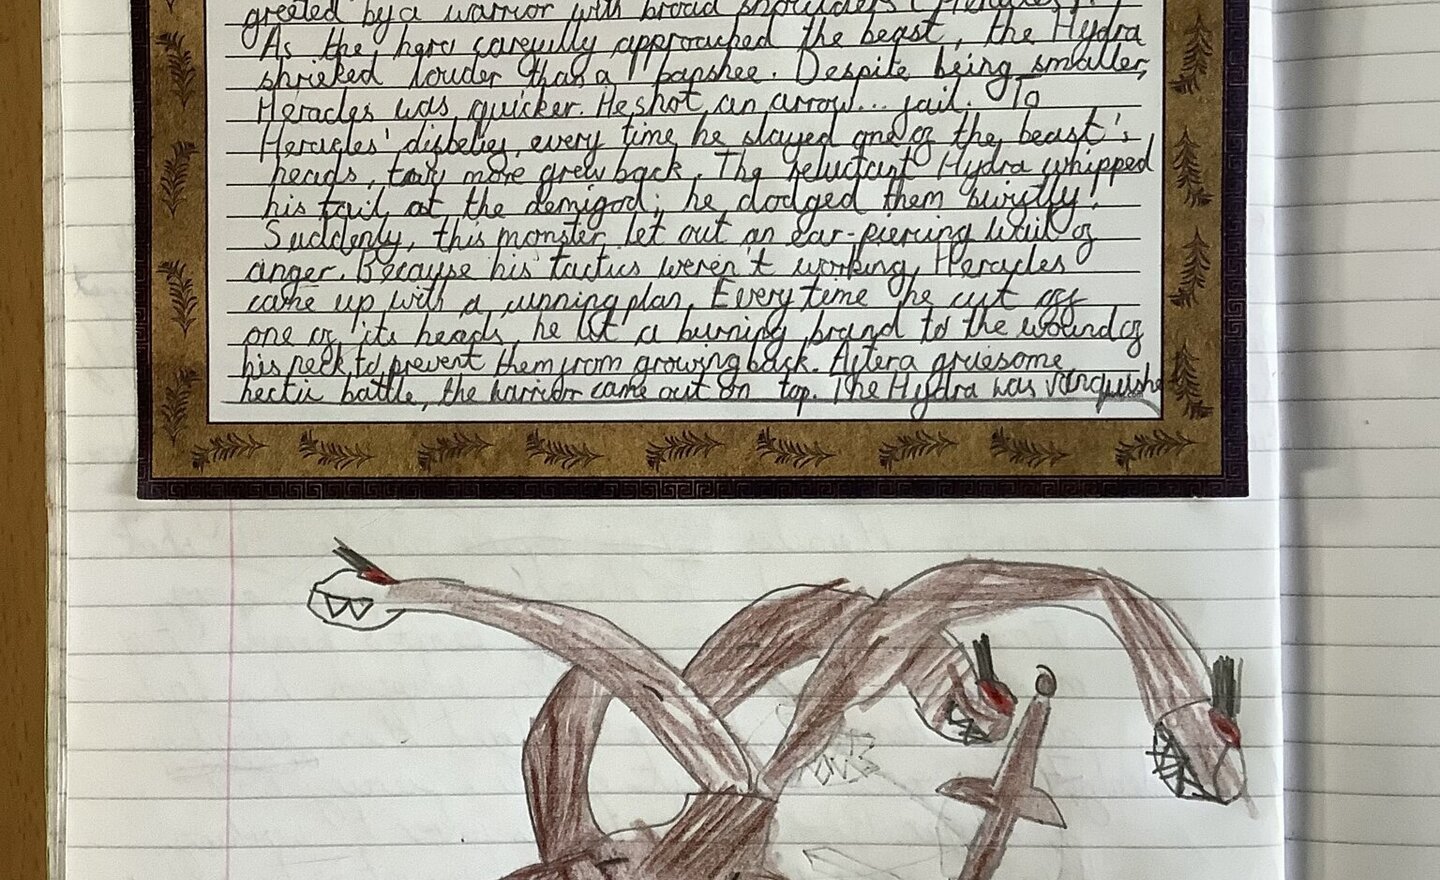 greeted by a warrior with broad shoulders (Heracles).
As the hero carefully approached the beast, the Hydra
shrieked louder than a banshee. Despite being smaller,
Heracles was quicker. He shot an arrow... fail. To
Heracles' disbelief, every time he slayed one of the beast's
heads, two more grew back. The reluctant Hydra whipped
his tail at the demigod; he dodged them swiftly!
Suddenly, this monster let out an ear-piercing wail of
anger. Because his tactics weren't working, Heracles
came up with a cunning plan. Every time he cut off
one of its heads, he lit a burning brand to the wound of
his neck to prevent them from growing back. After a gruesome
hectic battle, the warrior came out on top. The Hydra was vanquishe